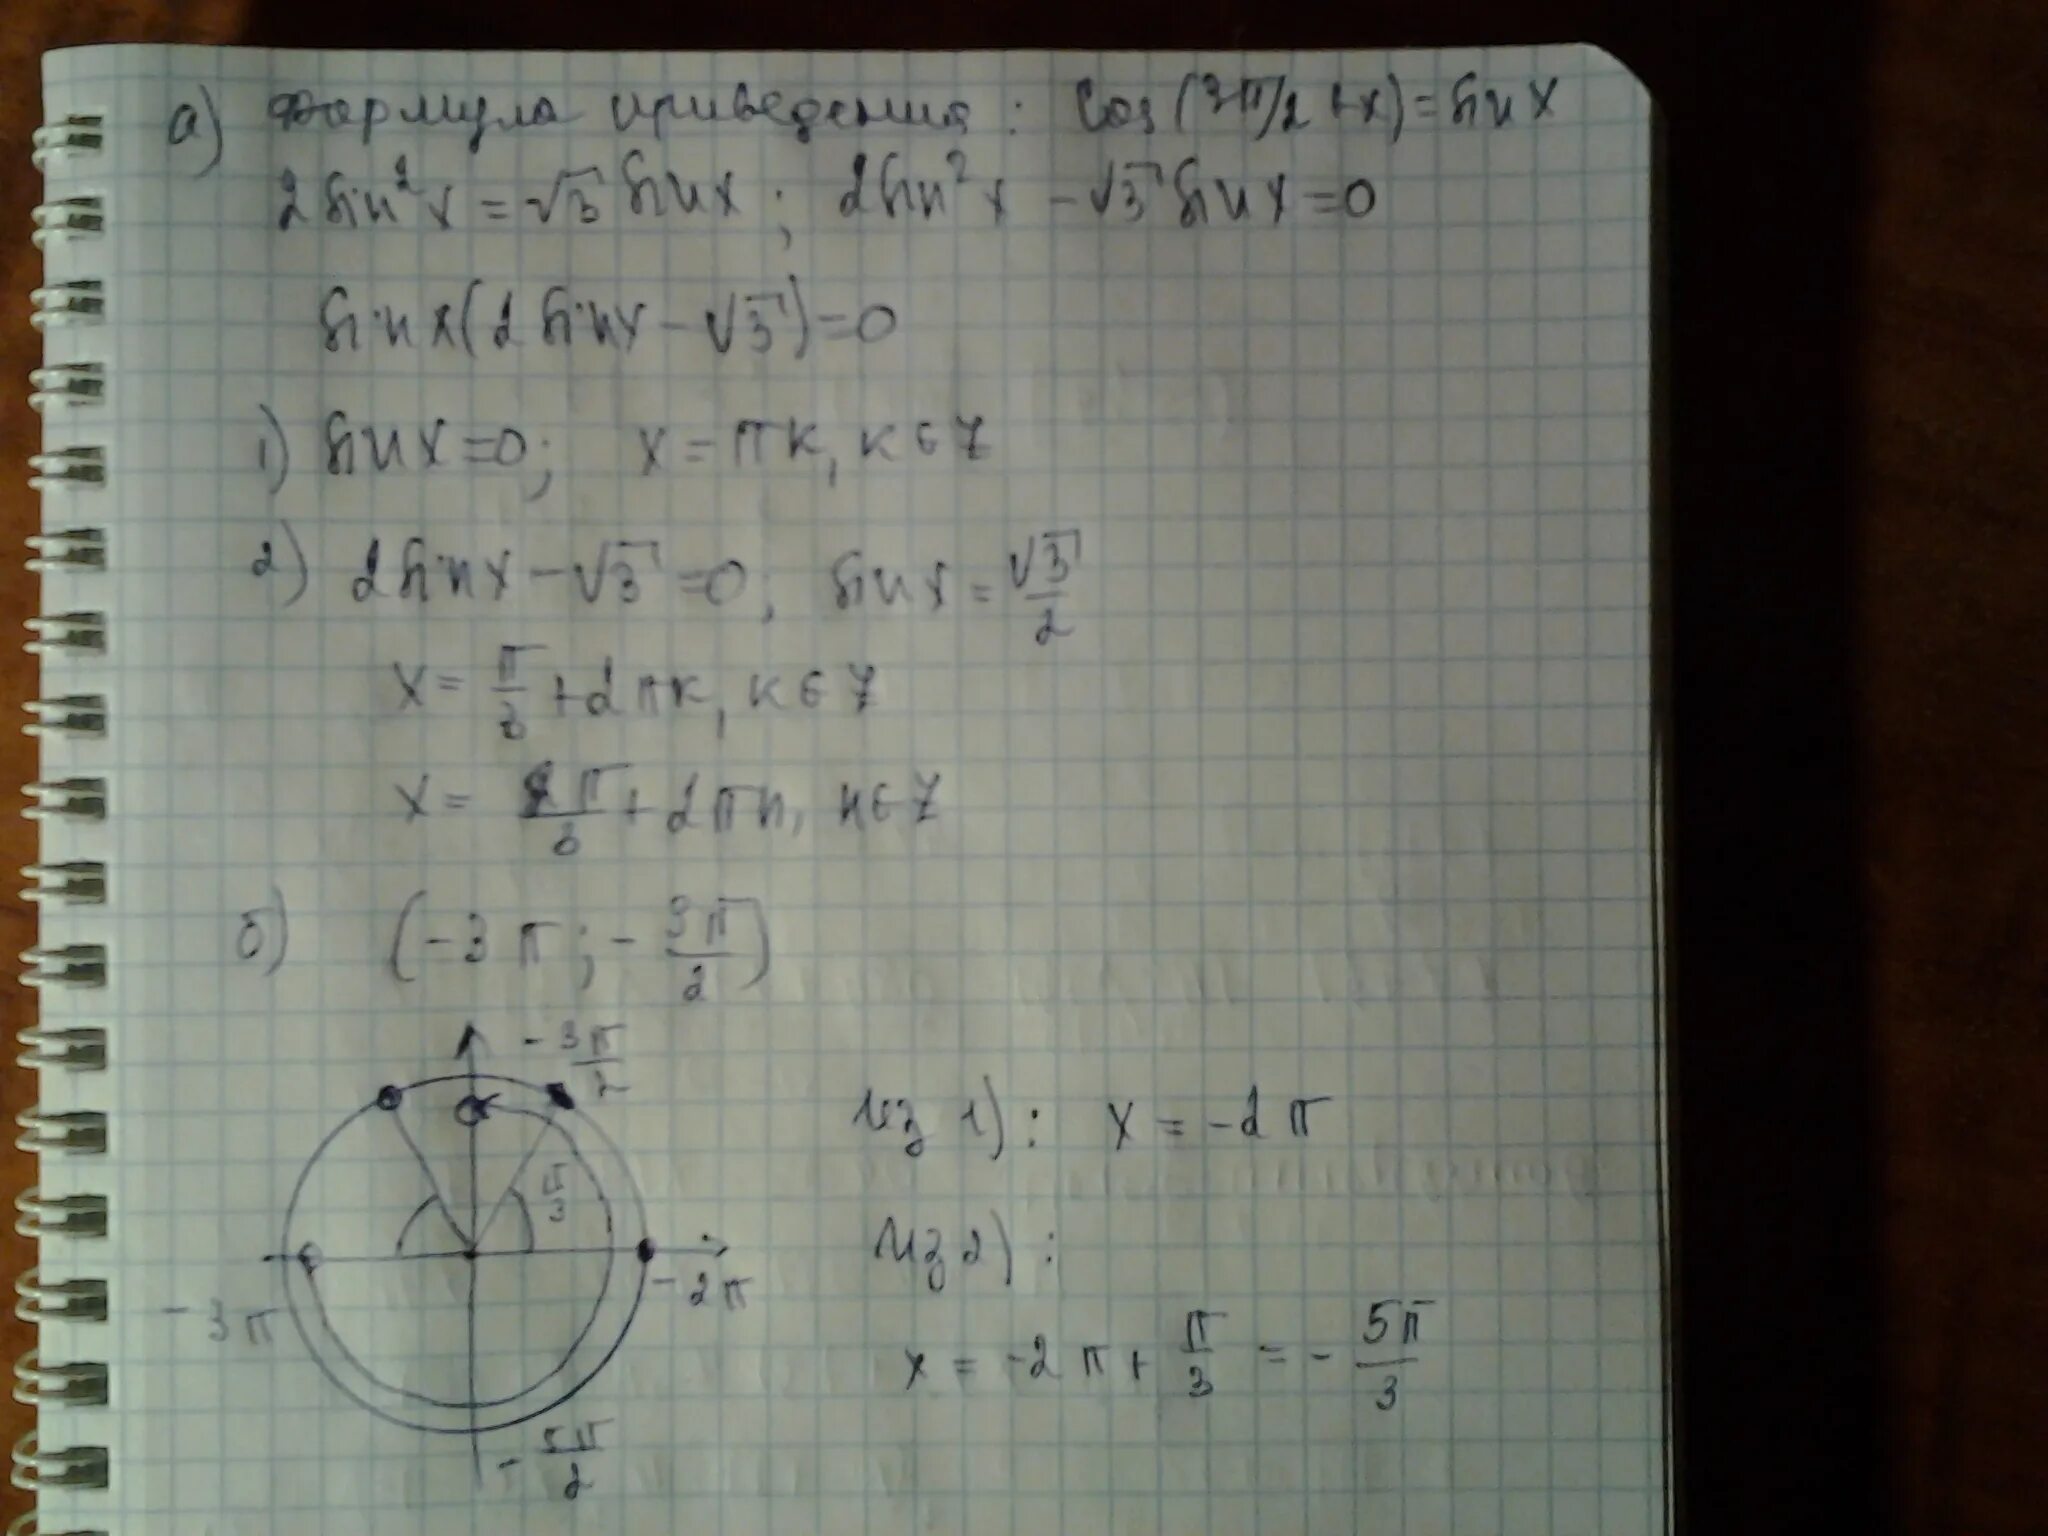 а) Формула приведения: cos(3π/2+x)=sin x
2sin²x=√3 sin x; 2sin²x-√3 sin x=0
sin x(2sin x-√3)=0
1) sin x=0; x=πк, к∈Z
2) 2sin x-√3=0; sin x=√3/2
x=π/3+2πк, к∈Z
x=2π/3+2πn, n∈Z
б) (-3π;-3π/2)
-3π/2
π/3
-2π
-3π
-5π/2
Из 1): x=-2π
Из 2):
x=-2π+π/3=-5π/3